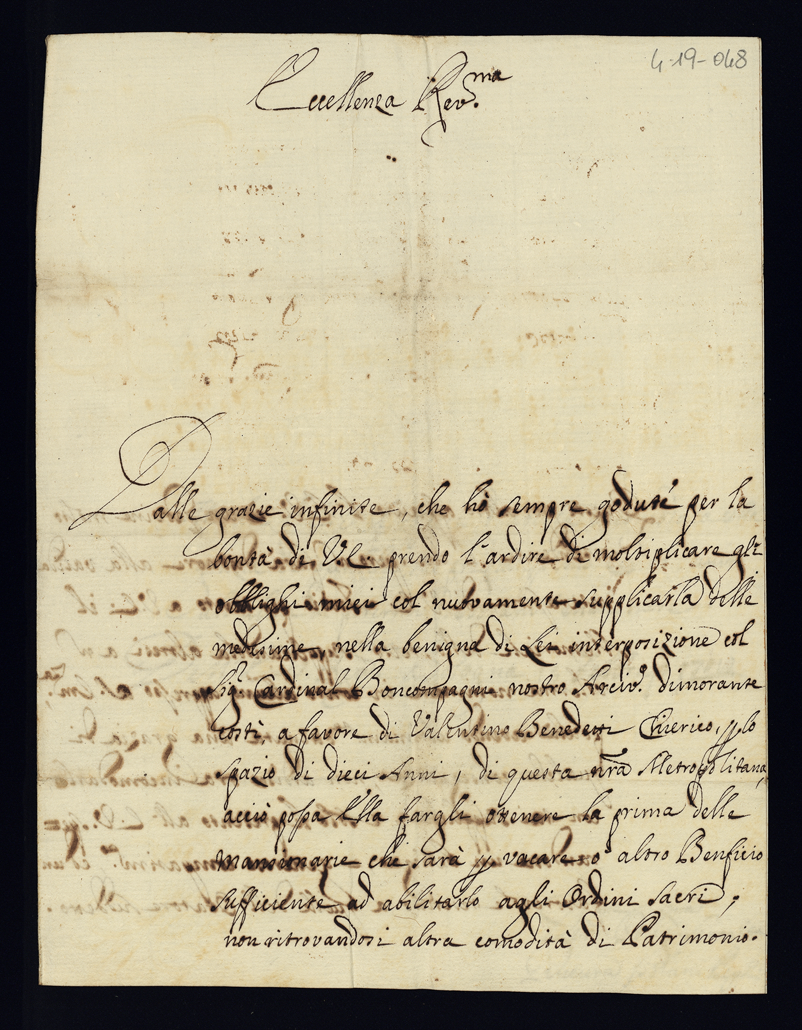 4-19-048
Eccellenza Rev.ma
Dalle grazie infinite, che hò sempre godute per la
bontà di V.E. prendo l'ardire di moltiplicare gli
obblighi miei col nuovamente supplicarla delle
medesime, nella benigna di Lei interposizione col
Sig.r Cardinal Boncompagni nostro Arciv.o dimorante
costì, a favore di Valentino Benedetti Chierico, p lo
spazio di dieci Anni, di questa nra Metropolitana,
acciò possa Ella fargli ottenere la prima delle
mansionarie che sarà p vacare o' altro Benficio
sufficiente ad abilitarlo agli Ordini sacri,
non ritrovandosi altra comodità di Patrimonio.